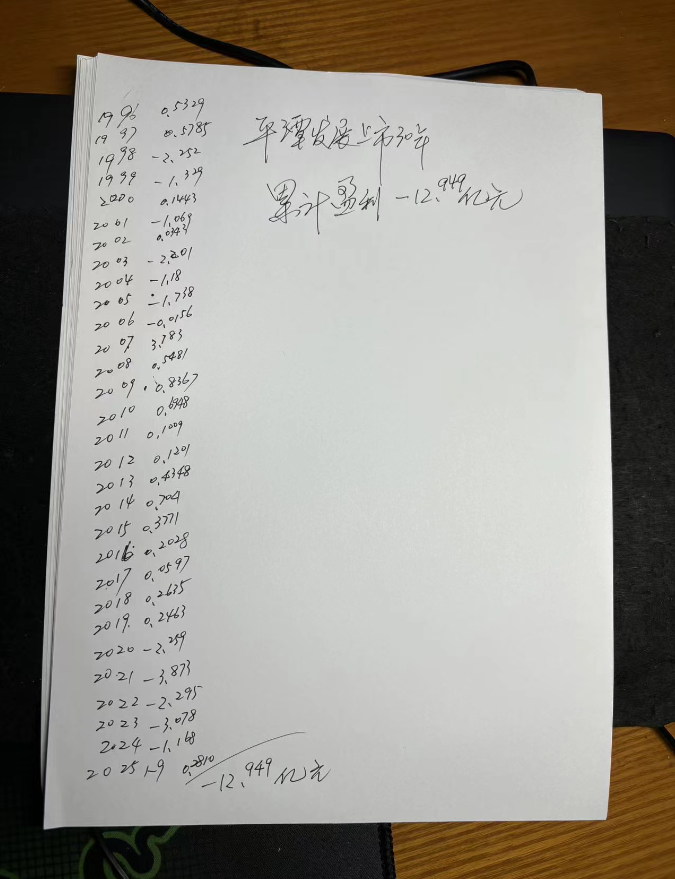 1996 0.5329
1997 0.5785
1998 -2.252
1999 -1.329
2000 0.1443
2001 -1.069
2002 0.0343
2003 -2.201
2004 -1.18
2005 -1.738
2006 -0.0156
2007 3.783
2008 0.5481
2009 0.8367
2010 0.6948
2011 0.1009
2012 0.1201
2013 0.4348
2014 0.704
2015 0.3771
2016 0.2028
2017 0.0597
2018 0.2635
2019 0.2463
2020 -2.259
2021 -3.873
2022 -2.295
2023 -3.078
2024 -1.168
2025 1-9 0.2810
-12.949亿元
平潭发展上市30年
累计盈利 -12.949亿元